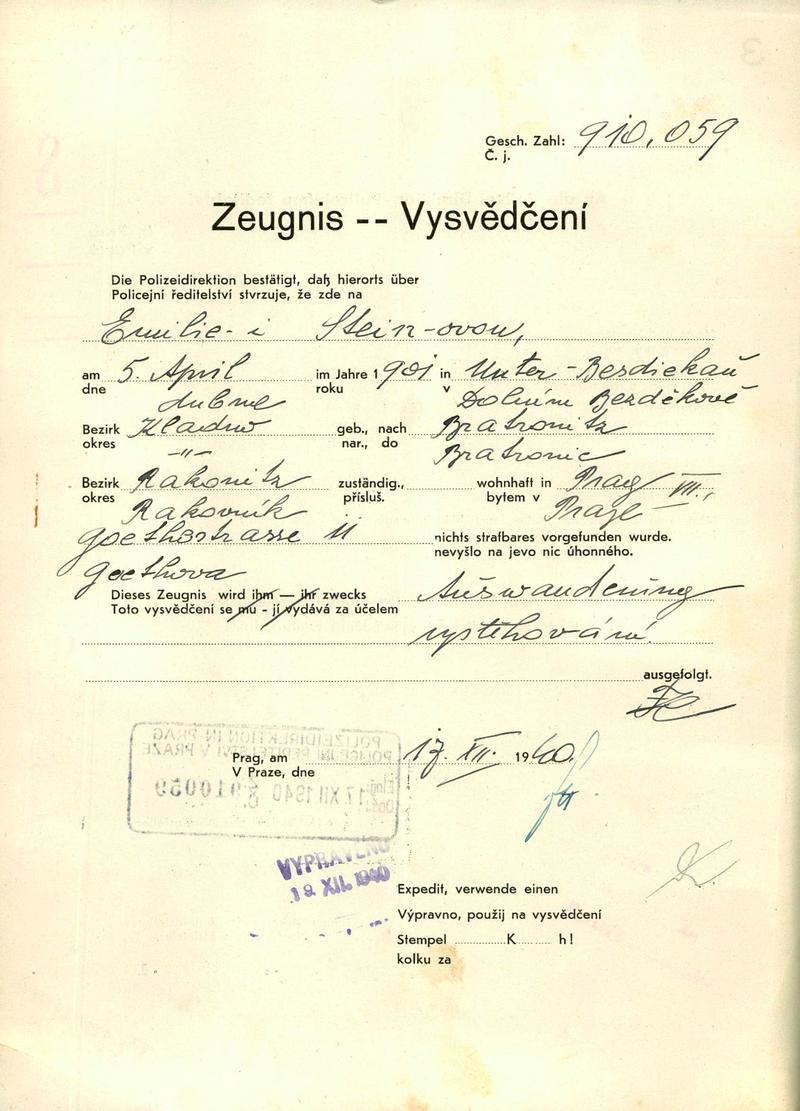 Gesch. Zahl: 910,059
Č. j.
Zeugnis -- Vysvědčení
Die Polizeidirektion bestätigt, daß hierorts über
Policejní ředitelství stvrzuje, že zde na
Emilie-i Stein-ovou,
am 5. April im Jahre 1901 in Unter-Bezdiekau
dne dubna roku v Dolním Bezděkově
Bezirk Kladno geb., nach Bratronitz
okres -"- nar., do Bratronic
Bezirk Rakonitz zuständig., wohnhaft in Prag VII.,
okres Rakovník přísluš. bytem v Praze
Goethestrasse 11 nichts strafbares vorgefunden wurde.
Goethova nevyšlo na jevo nic úhonného.
Dieses Zeugnis wird ihm — ihr zwecks Auswanderung
Toto vysvědčení se mu - jí vydává za účelem
vystěhování
ausgefolgt.
POLIZEIDIREKTION IN PRAG
POLICEJNÍ ŘEDITELSTVÍ V PRAZE
Prag, am 17. XII. 1940
V Praze, dne
17. XII 1940 910059
VYPRAVENO
19. XII. 1940
Expedit, verwende einen
Výpravno, použij na vysvědčení
Stempel K h!
kolku za